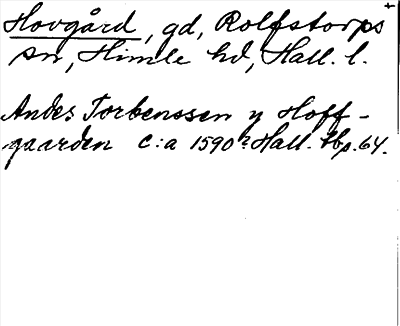 Hovgård, gd, Rolfstorps
sn, Himle hd, Hall. l.
Andes Torbenssen y Hoff-
gaarden c:a 1590? Hall. tbp. 64.